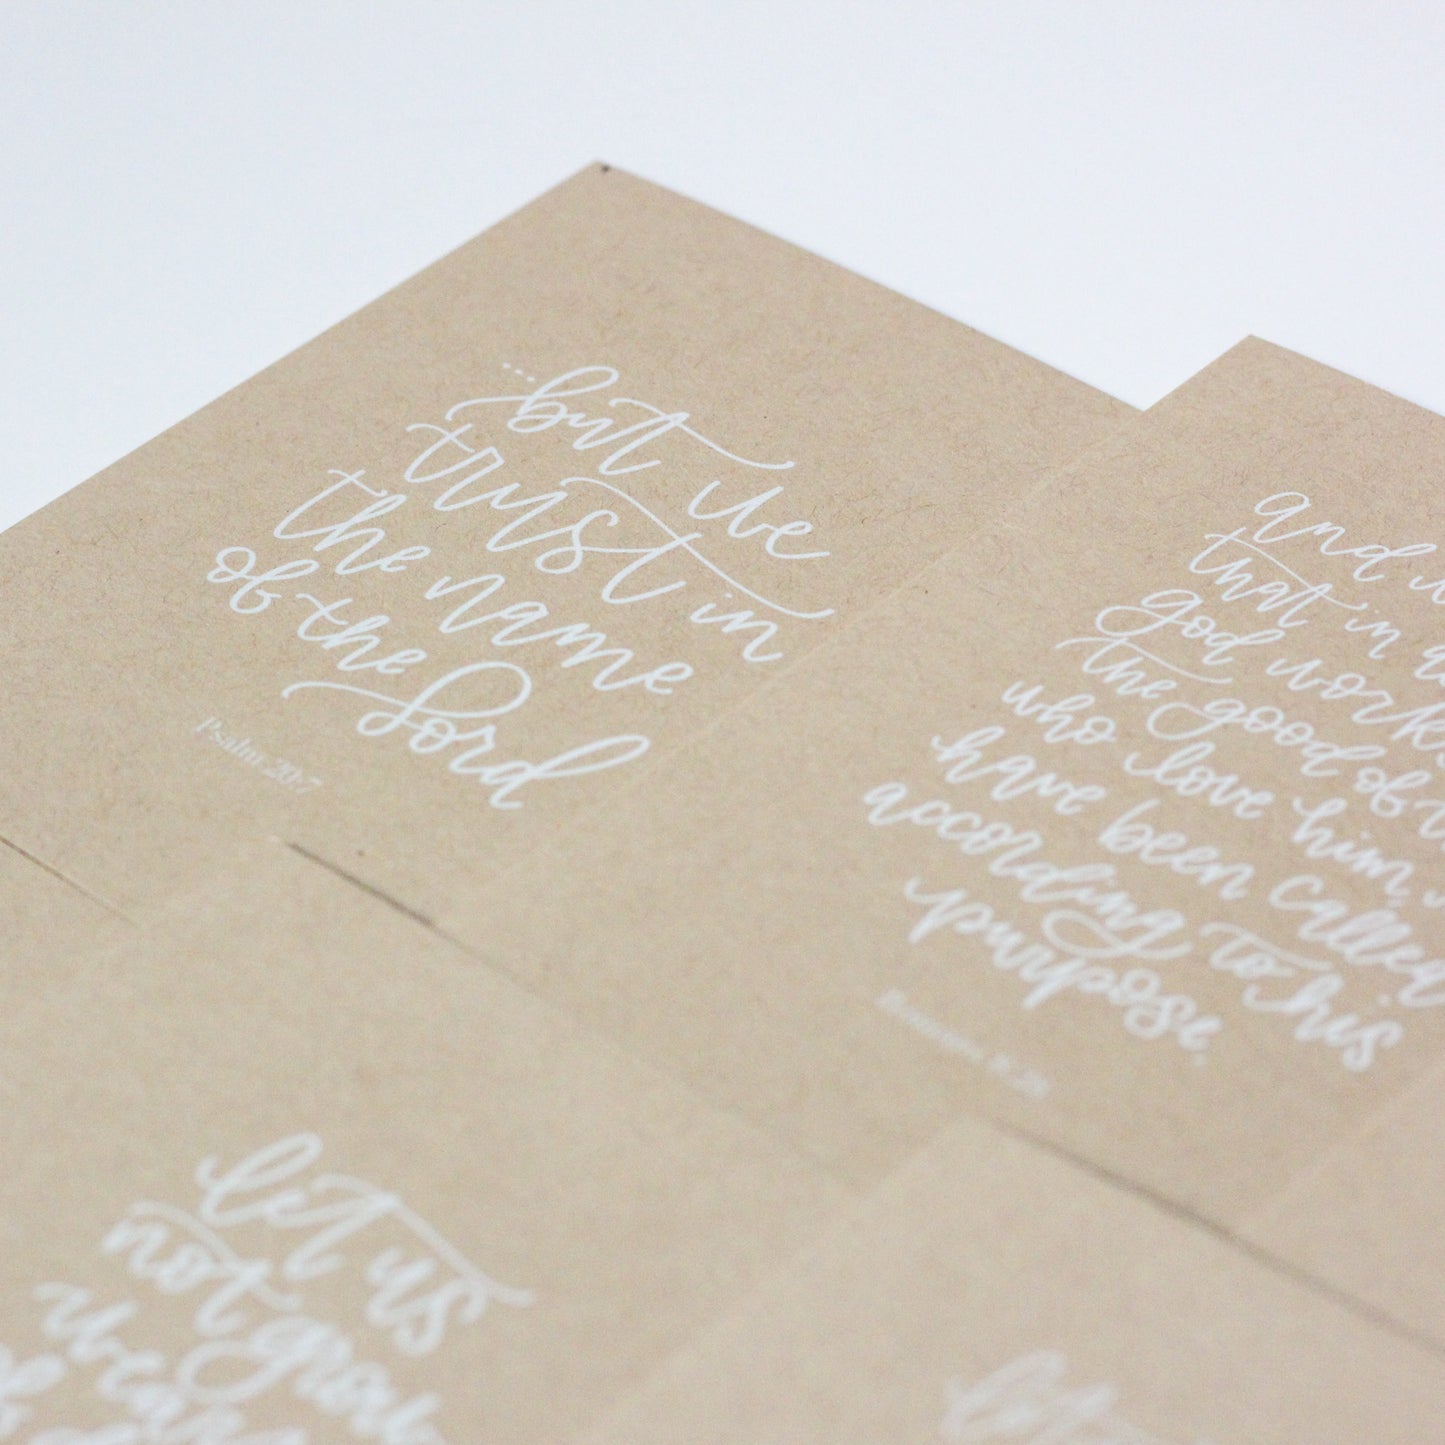 ...but we
trust in
the name
of the Lord
Psalm 20:7
and
that in
god works
the good of
who love him,
have been called
according to his
purpose.
Romans 8:28
let us
not grow
wear
let